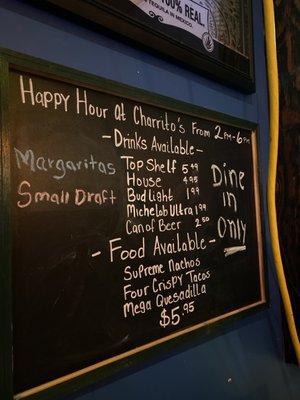 100%
REAL
Happy Hour At Charrito's From 2PM-6PM
-Drinks Available-
Margaritas
Top Shelf 5.49
House 4.95
Small Draft
Bud light 1.99
Michelob Ultra 1.99
Can of Beer 2.50
Dine
in
Only
-Food Available-
Supreme Nachos
Four Crispy Tacos
Mega Quesadilla
$5.95